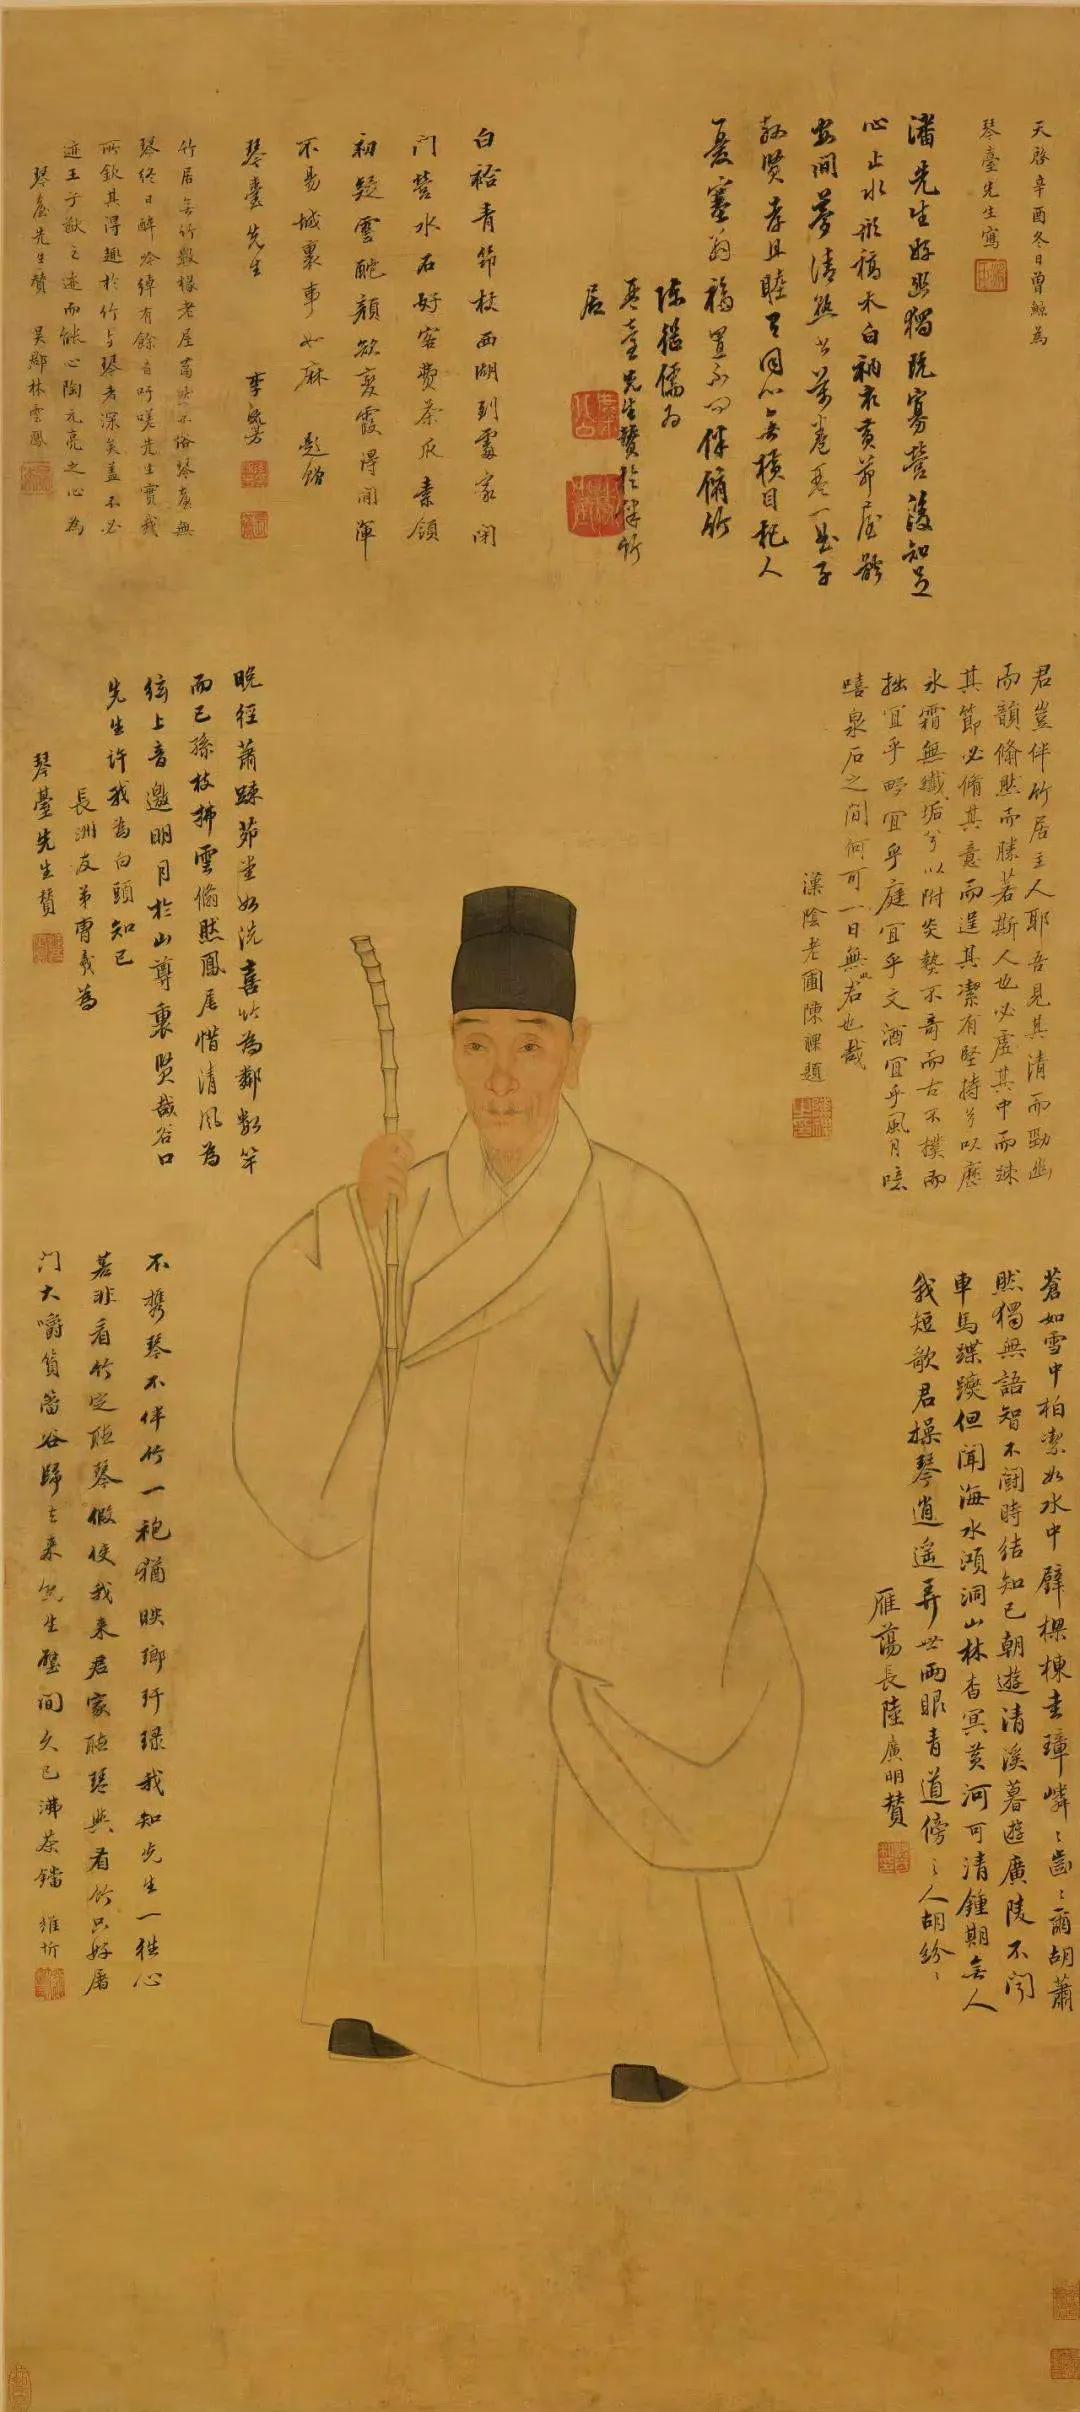 天啓辛酉冬日曾鯨為
琴臺先生寫
潘先生好幽獨既寡營復知足
心止水形槁木白衲衣黄茆屋骸
安間夢清熟
孰賢孝且睦
憂塞翁福置不問伴脩竹
陳繼儒为
琴臺先生贊於伴竹
居
白袷青節杖西湖到處家閑
門營水石好客費茶瓜素領
初疑雲酡顏欲變霞得閒渾
不易城裏事如麻 題贈
琴臺先生 李流芳
竹居無竹數椽老屋
琴終日醉吟綽有餘音吁嗟先生實我
所欽其得趣於竹与琴者深矣蓋不必
迹王子猷之迹而能心陶元亮之心為
琴臺先生贊 吴郡林雲鳳
君豈伴竹居主人耶吾見其清而勁幽
而韻脩然而勝若斯人也必虛其中而疎
其節必脩其意而逞其潔有堅持兮以歷
冰霜無纖垢兮以附炎𤍠不奇而古不樸而
拙宜乎野宜乎庭宜乎文酒宜乎風月噫
嘻泉石之間何可一日無此君也哉
漢陰老圃陳祼題
晚徑蕭踈茆堂如洗喜竹為鄰數竿
而已孫枝拂雲翛然鳳尾惜清風為
絃上音邀明月於山尊裏賢哉谷口
先生許我為白頭知己
長洲友弟曹羲為
琴臺先生贊
蒼如雪中柏潔如水中璧樑棟圭璋嶙嶙齒齒爾胡蕭
然獨無語智不鬪時結知己朝遊清溪暮遊廣陵不聞
車馬蹀躞但聞海水澒洞山林杳冥黄河可清鍾期無人
我短歌君操琴逍遥弄世兩眼青道傍之人胡紛紛
雁蕩長陸廣明贊
不携琴不伴竹一袍猶映瑯玕緑我知先生一種心
若非看竹定聽琴假使我来君家聽琴與看竹只好屠
門大嚼篔簹谷歸去来先生壁間久已沸茶鐺 維圻